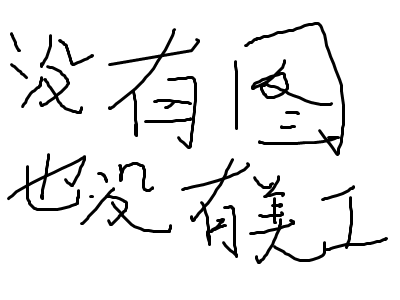 没有图
也没有美工